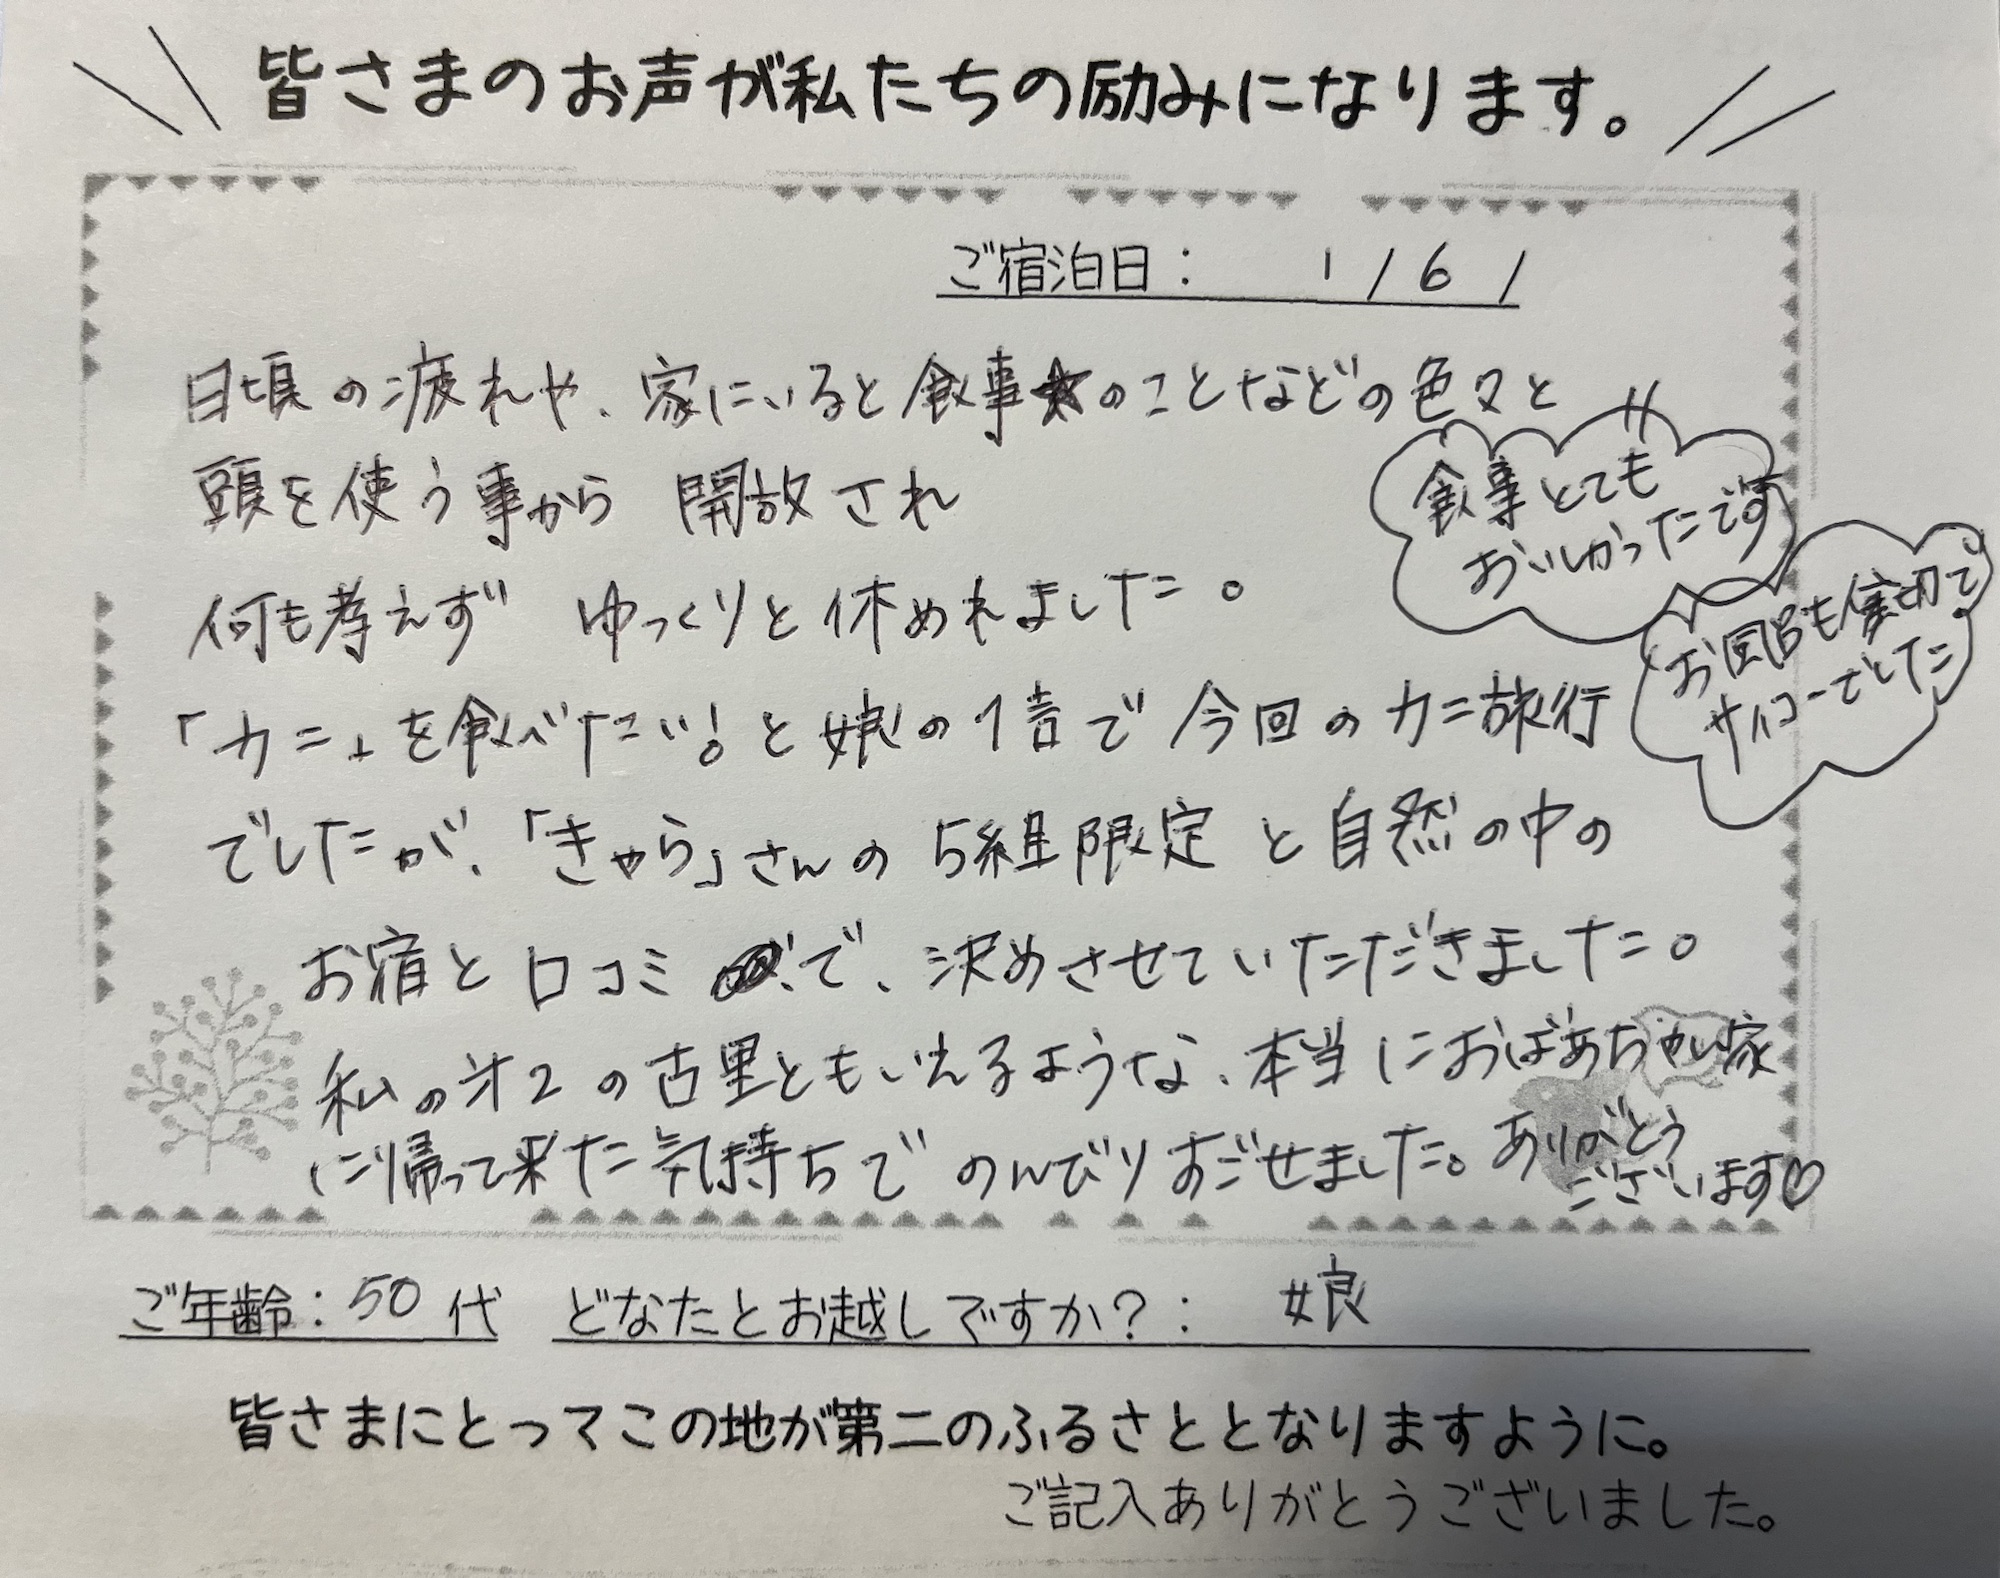 皆さまのお声が私たちの励みになります。
ご宿泊日： 1/6/
日頃の疲れや、家にいると食事のことなどの色々と
頭を使う事から 開放され
何も考えず ゆっくりと休めれました。
食事とても
おいしかったです
お風呂も貸切で
サイコーでした
「カニ」を食べたい！と娘の1言で今回のカニ旅行
でしたが、「きゃら」さんの5組限定と自然の中の
お宿と口コミで、決めさせていただきました。
私の才2の古里ともいえるような、本当におばあちゃん家
に帰って来た気持ちでのんびりすごせました。ありがとう
ございます♡
ご年齢：50代 どなたとお越しですか？： 娘
皆さまにとってこの地が第二のふるさととなりますように。
ご記入ありがとうございました。